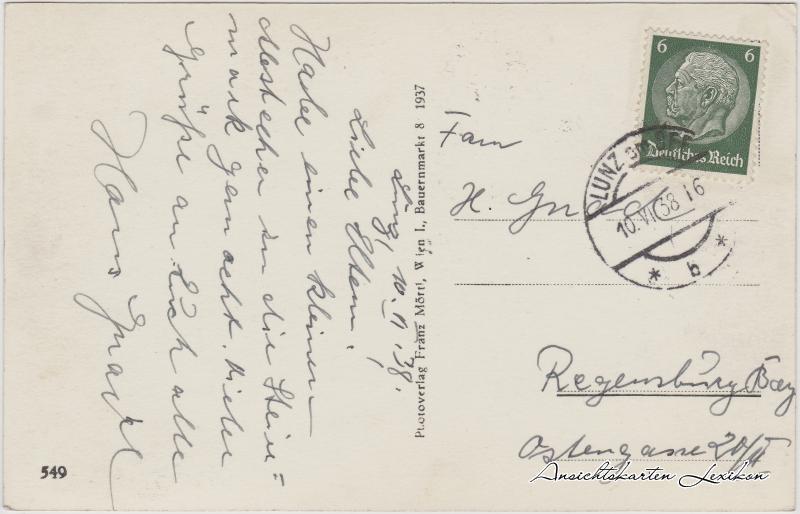 Lunz, 10. VI. 38.
Liebe Eltern!
Habe einen kleinen
Abstecher in die Steier=
mark gemacht. Viele
Grüße an Euch alle
Hans
549
Photoverlag Franz Mörtl, Wien I., Bauernmarkt 8 1937
6 6
Deutsches Reich
LUNZ
10. VI 38 16
* b *
Fam
H.
Regensburg Bay
Ostengasse 20/II
Ansichtskarten Lexikon